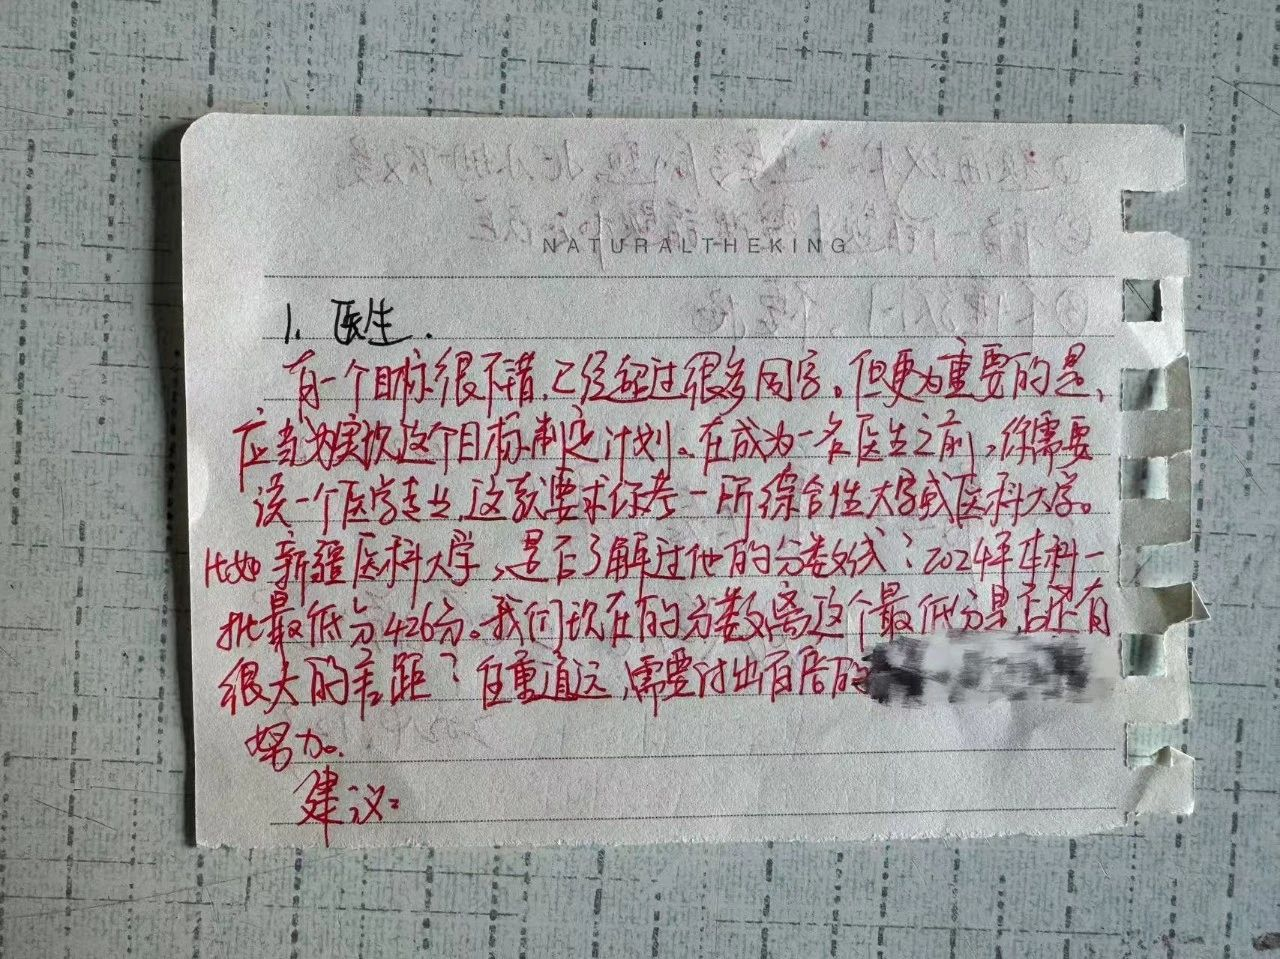 NATURALTHEKING
1. 医生.
有一个目标很不错,已经超过很多同学。但更为重要的是,
应当为实现这个目标制定计划。在成为一名医生之前,你需要
读一个医学专业,这就要求你考一所综合性大学或医科大学。
比如新疆医科大学,是否了解过他的分数线?2024年本科一
批最低分426分。我们现在的分数离这个最低分是否还有
很大的差距?任重道远,需要付出百倍的
努力。
建议: